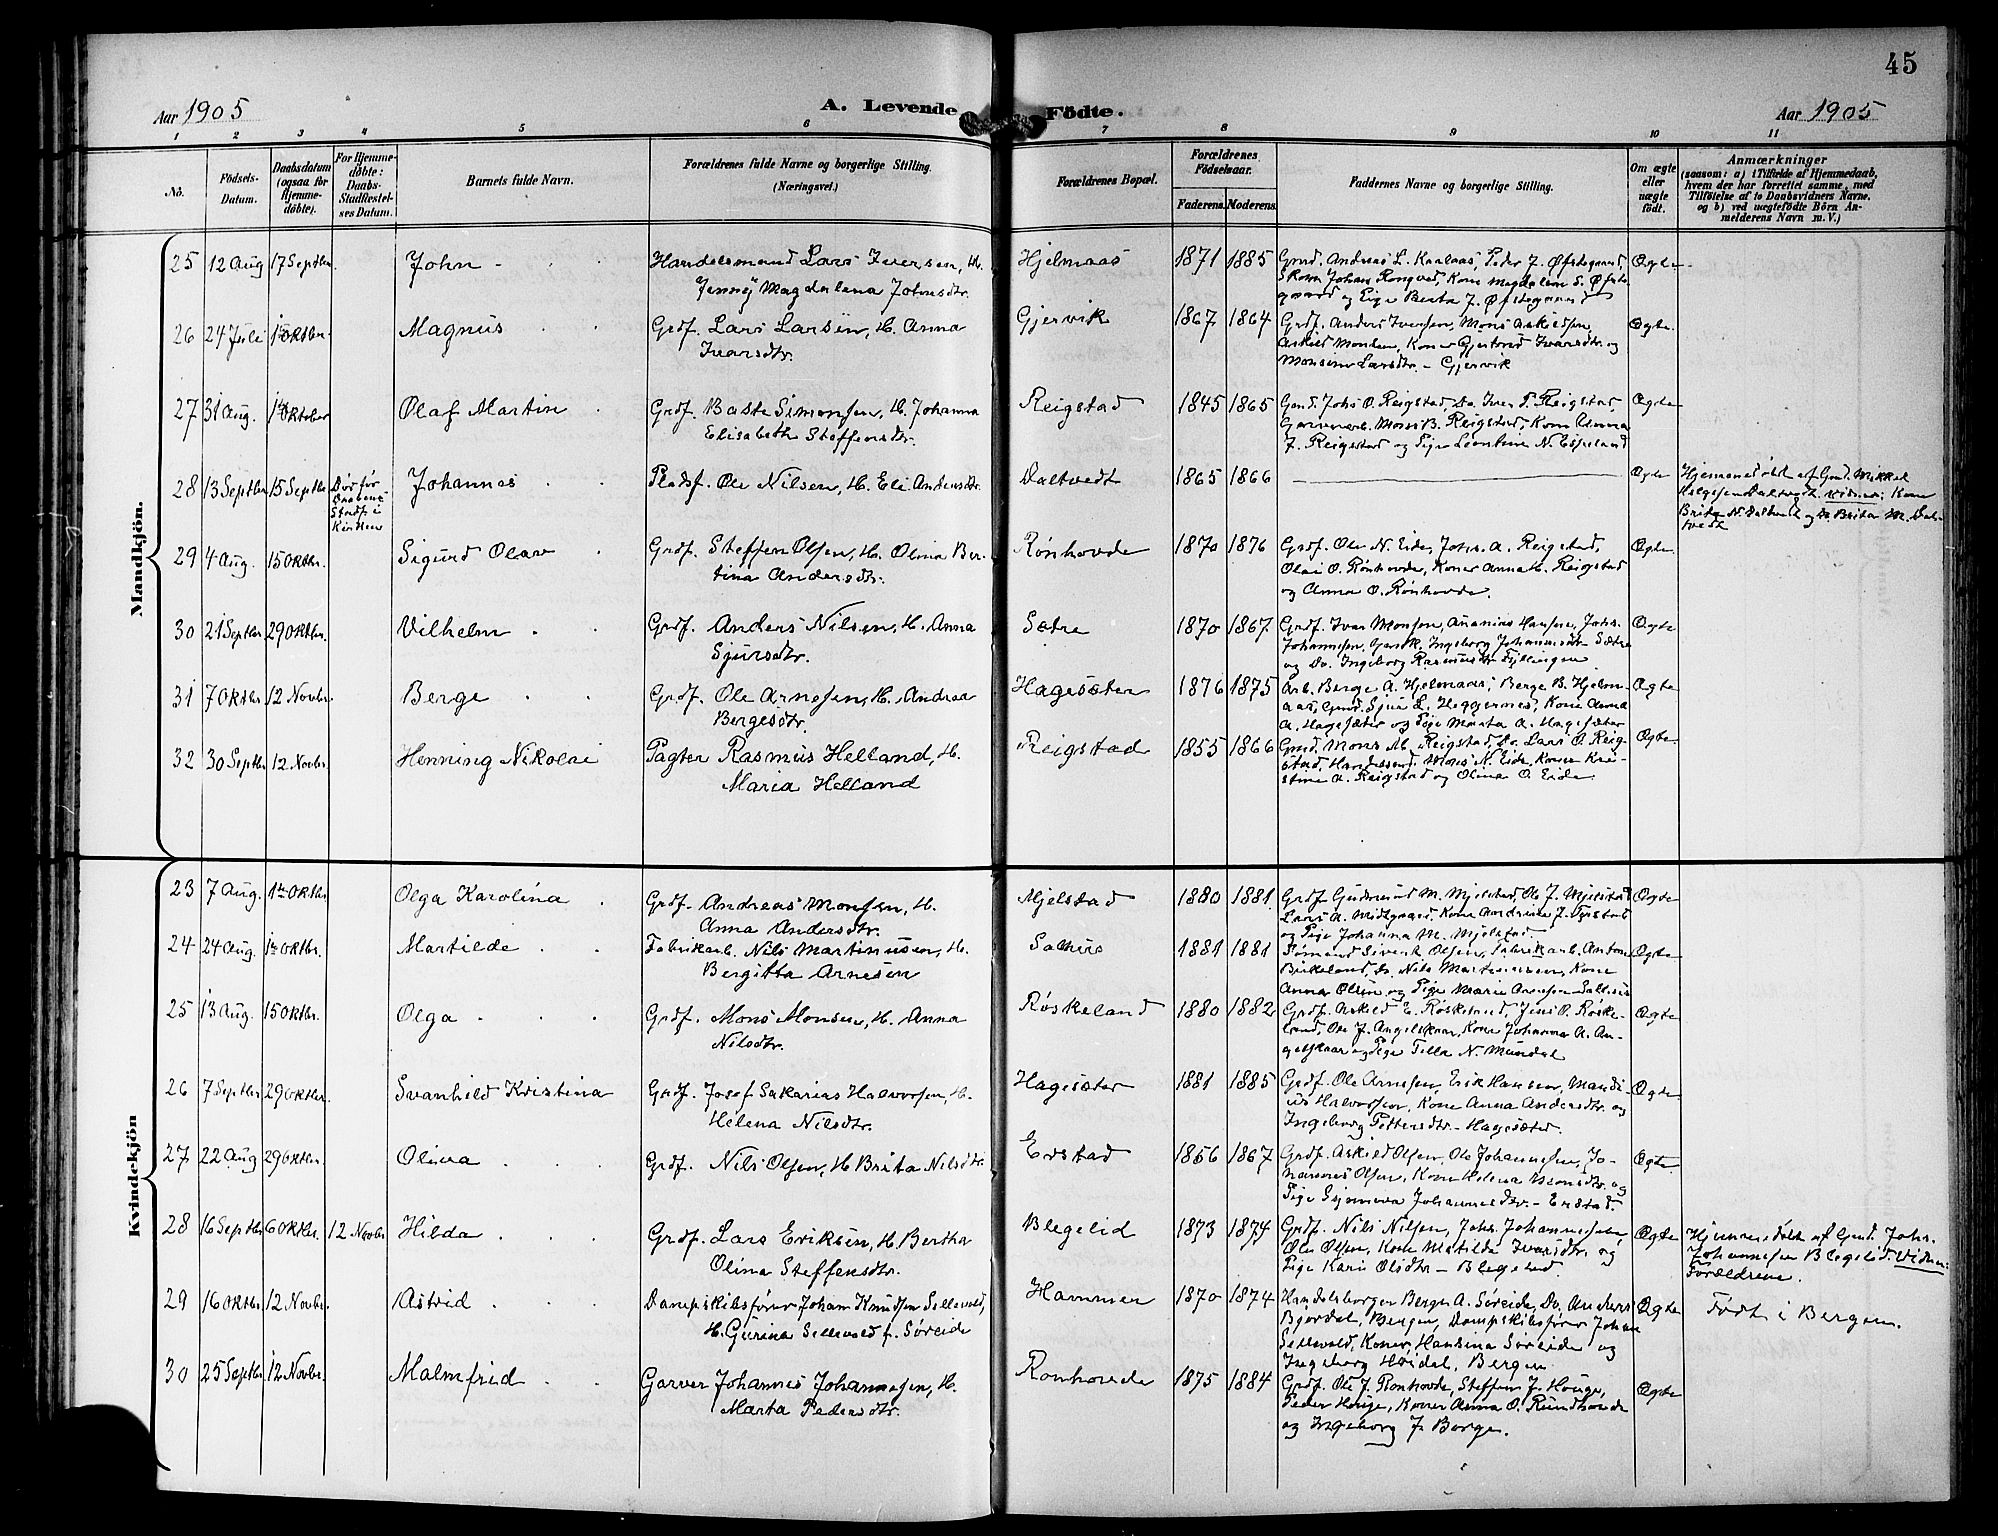 45
Aar 1905
A. Levende Födte.
Aar 1905
1 2 3 4 5 6 7 8 9 10 11
No.
Födsels-
Datum.
Daabsdatum
(ogsaa for
Hjemme-
döbte).
For Hjemme-
döbte:
Daabs-
Stadfæstel-
ses Datum.
Barnets fulde Navn.
Forældrenes fulde Navne og borgerlige Stilling.
(Næringsvei.)
Forældrenes Bopæl.
Forældrenes
Födselsaar.
Faderens. Moderens.
Faddernes Navne og borgerlige Stilling.
Om ægte
eller
uægte
født.
Anmærkninger
(saasom: a) i Tilfælde af Hjemmedaab,
hvem der har forrettet samme, med
Tilföielse af to Daabsvidners Navne,
og b) ved uægtefödte Börn An-
melderens Navn m. V.)
Mandkjön.
25 12 Aug 17 Septbr. John Handelsmand Lars Iversen, H.
Jenny Magdalena Johnsdtr. Hjelmaas 1871 1885 Gmd. Andreas L. Kaalaas, Peder J. Øfstegaard
Skom. Johan Rongved, Kone Magdalena S. Øfste-
gaard og Pige Berta J. Øfstegaard Ægte
26 24 Juli 1ste Oktbr. Magnus Grdf. Lars Larsen, H. Anna
Ivarsdtr. Gjervik 1867 1864 Grdf. Anders Iversen, Mons Askildsen,
Askild Monsen, Koner Gjertrud Ivarsdtr. og
Monsine Larsdtr. - Gjervik Ægte
27 31 Aug. 1ste Oktober Olaf Martin Grdf. Baste Simonsen, H. Johanna
Elisabeth Steffensdtr. Reigstad 1845 1865 Gmd. Johs O. Reigstad, Do. Iver T. Reigstad,
Garverarb. Mons B. Reigstad, Kone Anna
J. Reigstad og Pige Leontine N. Espeland Ægte
28 13 Septbr 15 Septbr Død før
Daabens
Stadf. i
Kirken Johannes Pladsf. Ole Nilsen, H. Eli Andersdtr. Daltvedt 1865 1866 Ægte Hjemmedøbt af Gmd. Mikkel
Helgesen Daltvedt. Vidner: Kone
Brita N. Daltvedt og Do. Brita M. Dalt-
vedt
29 4 Aug. 15 Oktbr. Sigurd Olav Grdf. Steffen Olsen, H. Olina Ber-
tina Andersdtr. Rønhovde 1870 1876 Grdf. Ole N. Eide, Johs. A. Reigstad,
Olai O. Rønhovde, Koner Anna H. Reigstad
og Anna O. Rønhovde. Ægte
30 21 Septbr. 29 Oktbr. Vilhelm Grdf. Anders Nilsen, H. Anna
Sjursdtr. Sætre 1870 1867 Grdf. Ivar Monsen, Ananias Hansen, Johs.
Johannesen, Gjervik, Ingeborg Johannesdtr. Sætre
og Do. Ingeborg Rasmusdtr Fyllingen Ægte
31 7 Oktbr. 12 Novbr. Berge Grdf. Ole Arnesen, H. Andrea
Bergesdtr. Hagesæter 1876 1875 Arb. Berge A. Hjelmaas, Berge B. Hjelm-
aas, Gmd. Sjur L. Heggernes, Kone Anna
A. Hagesæter og Pige Marta A. Hagesæter Ægte
32 30 Septbr 12 Novbr. Henning Nikolai Pagter Rasmus Helland, H.
Maria Helland Reigstad 1855 1866 Gmd. Mons M. Reigstad, Do. Lars O. Reig-
stad, Handelsmd. Mons N. Eide, Koner Kri-
stine A. Reigstad og Olina O. Eide. Ægte
Kvindekjön
23 7 Aug. 1ste Oktbr Olga Karolina Grdf. Andreas Monsen, H.
Anna Andersdtr. Mjelstad 1880 1881 Grdf. Gudmund M. Mjelstad, Ole J. Mjelstad
Lars A. Midtgaard, Kone Andrina J.
og Pige Johanna M. Mjelstad. Ægte
24 24 Aug. 1ste Oktbr. Martilde Fabrikarb. Nils Martinusen, H.
Bergitta Arnesen Salhus 1881 1881 Sømand Sivert Olsen, Fabrikarb. Anton
Birkeland, Do. Nils Martinusen, Kone
Anna Olsen og Pige Marie Arnesen Salhus Ægte
25 13 Aug. 15 Oktbr. Olga Grdf. Mons Monsen, H. Anna
Nilsdtr. Røskeland 1880 1882 Grdf. Askild E. Røskeland, Jens O. Røske-
land, Ole J. Angelskaar, Kone Johanna A. An-
gelskaar og Pige Tilla N. Mundal Ægte
26 7 Septbr 29 Oktbr. Svanhild Kristina Grdf. Josef Sakarias Halvorsen, H.
Helena Nilsdtr. Hagesæter 1881 1885 Grdf. Ole Arnesen, Erik Hansen, Mandi-
us Halvorsen, Kone Anna Andersdtr. og
Ingeborg Pettersdtr. - Hagesæter. Ægte
27 22 Aug 29 Oktbr. Olina Grdf. Nils Olsen, H. Brita Nilsdtr. Erstad 1856 1867 Grdf. Askild Olsen, Ole Johannesen, Jo-
hannes Olsen, Kone Helena Monsdtr. og
Pige Synneva Johannesdtr. - Erstad. Ægte
28 16 Septbr 6 Oktbr. 12 Novbr Hilda Grdf. Lars Eriksen, H. Bertha
Olina Steffensdtr. Blegelid 1873 1874 Grdf. Nils Nilsen, Johs. Johannesen,
Ole Olsen, Kone Matilda Ivarsdtr. og
Pige Kari Olsdtr. - Blegelid. Ægte Hjemmedøbt af Gmd. Johs.
Johannesen Blegelid. Vidner:
Forældrene.
29 16 Oktbr. 12 Novbr. Astrid Dampskibsfører Johan Knudsen Sellevold,
H. Gurina Sellevold f. Søreide Hammer 1870 1874 Handelsborger Berge A. Søreide, Do. Anders
Bjordal, Bergen, Dampskibsfører Johan
Sellevold, Koner Hansina Søreide og
Ingeborg Høidal, Bergen Ægte Født i Bergen.
30 25 Septbr 12 Novbr. Malmfrid Garver Johannes Johannesen, H.
Marta Pedersdtr. Ronhovde 1875 1884 Grdf. Ole J. Ronhovde, Steffen J. Houge,
Peder Houge, Koner Anna O. Rundhovde
og Ingeborg J. Borge. Ægte